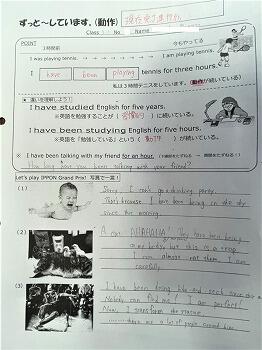 ずっと～しています。(動作) 現在完了進行形
Class No Name
POINT
3時間前 今もやってる
I was playing tennis. → → → → → → → I am playing tennis.
I have been playing tennis for three hours.
私は3時間テニスをしています。(動作が続いている)
★ 違いを理解しよう！
I have studied English for five years.
※英語を勉強することが( )に続いている。
I have been studying English for five hours.
※英語を「勉強している」という( 動作 )が続いている。
※ I have been talking with my friend for an hour.
How long have you been talking with your friend?
Let's play IPPON Grand Prix! 写真で一言!
(1) Sorry I can't go drinking party.
That's because I have been being in the sky
since this morning.
(2) A cat: AHAHAHA! They have been being
my baby, but this is a trap.
I can always eat them. I am
carefully.
(3) I have been being hide and seek since this
Nobody can find me! I am perfect!
Now, I transform the statue.
there are a lot of people around him